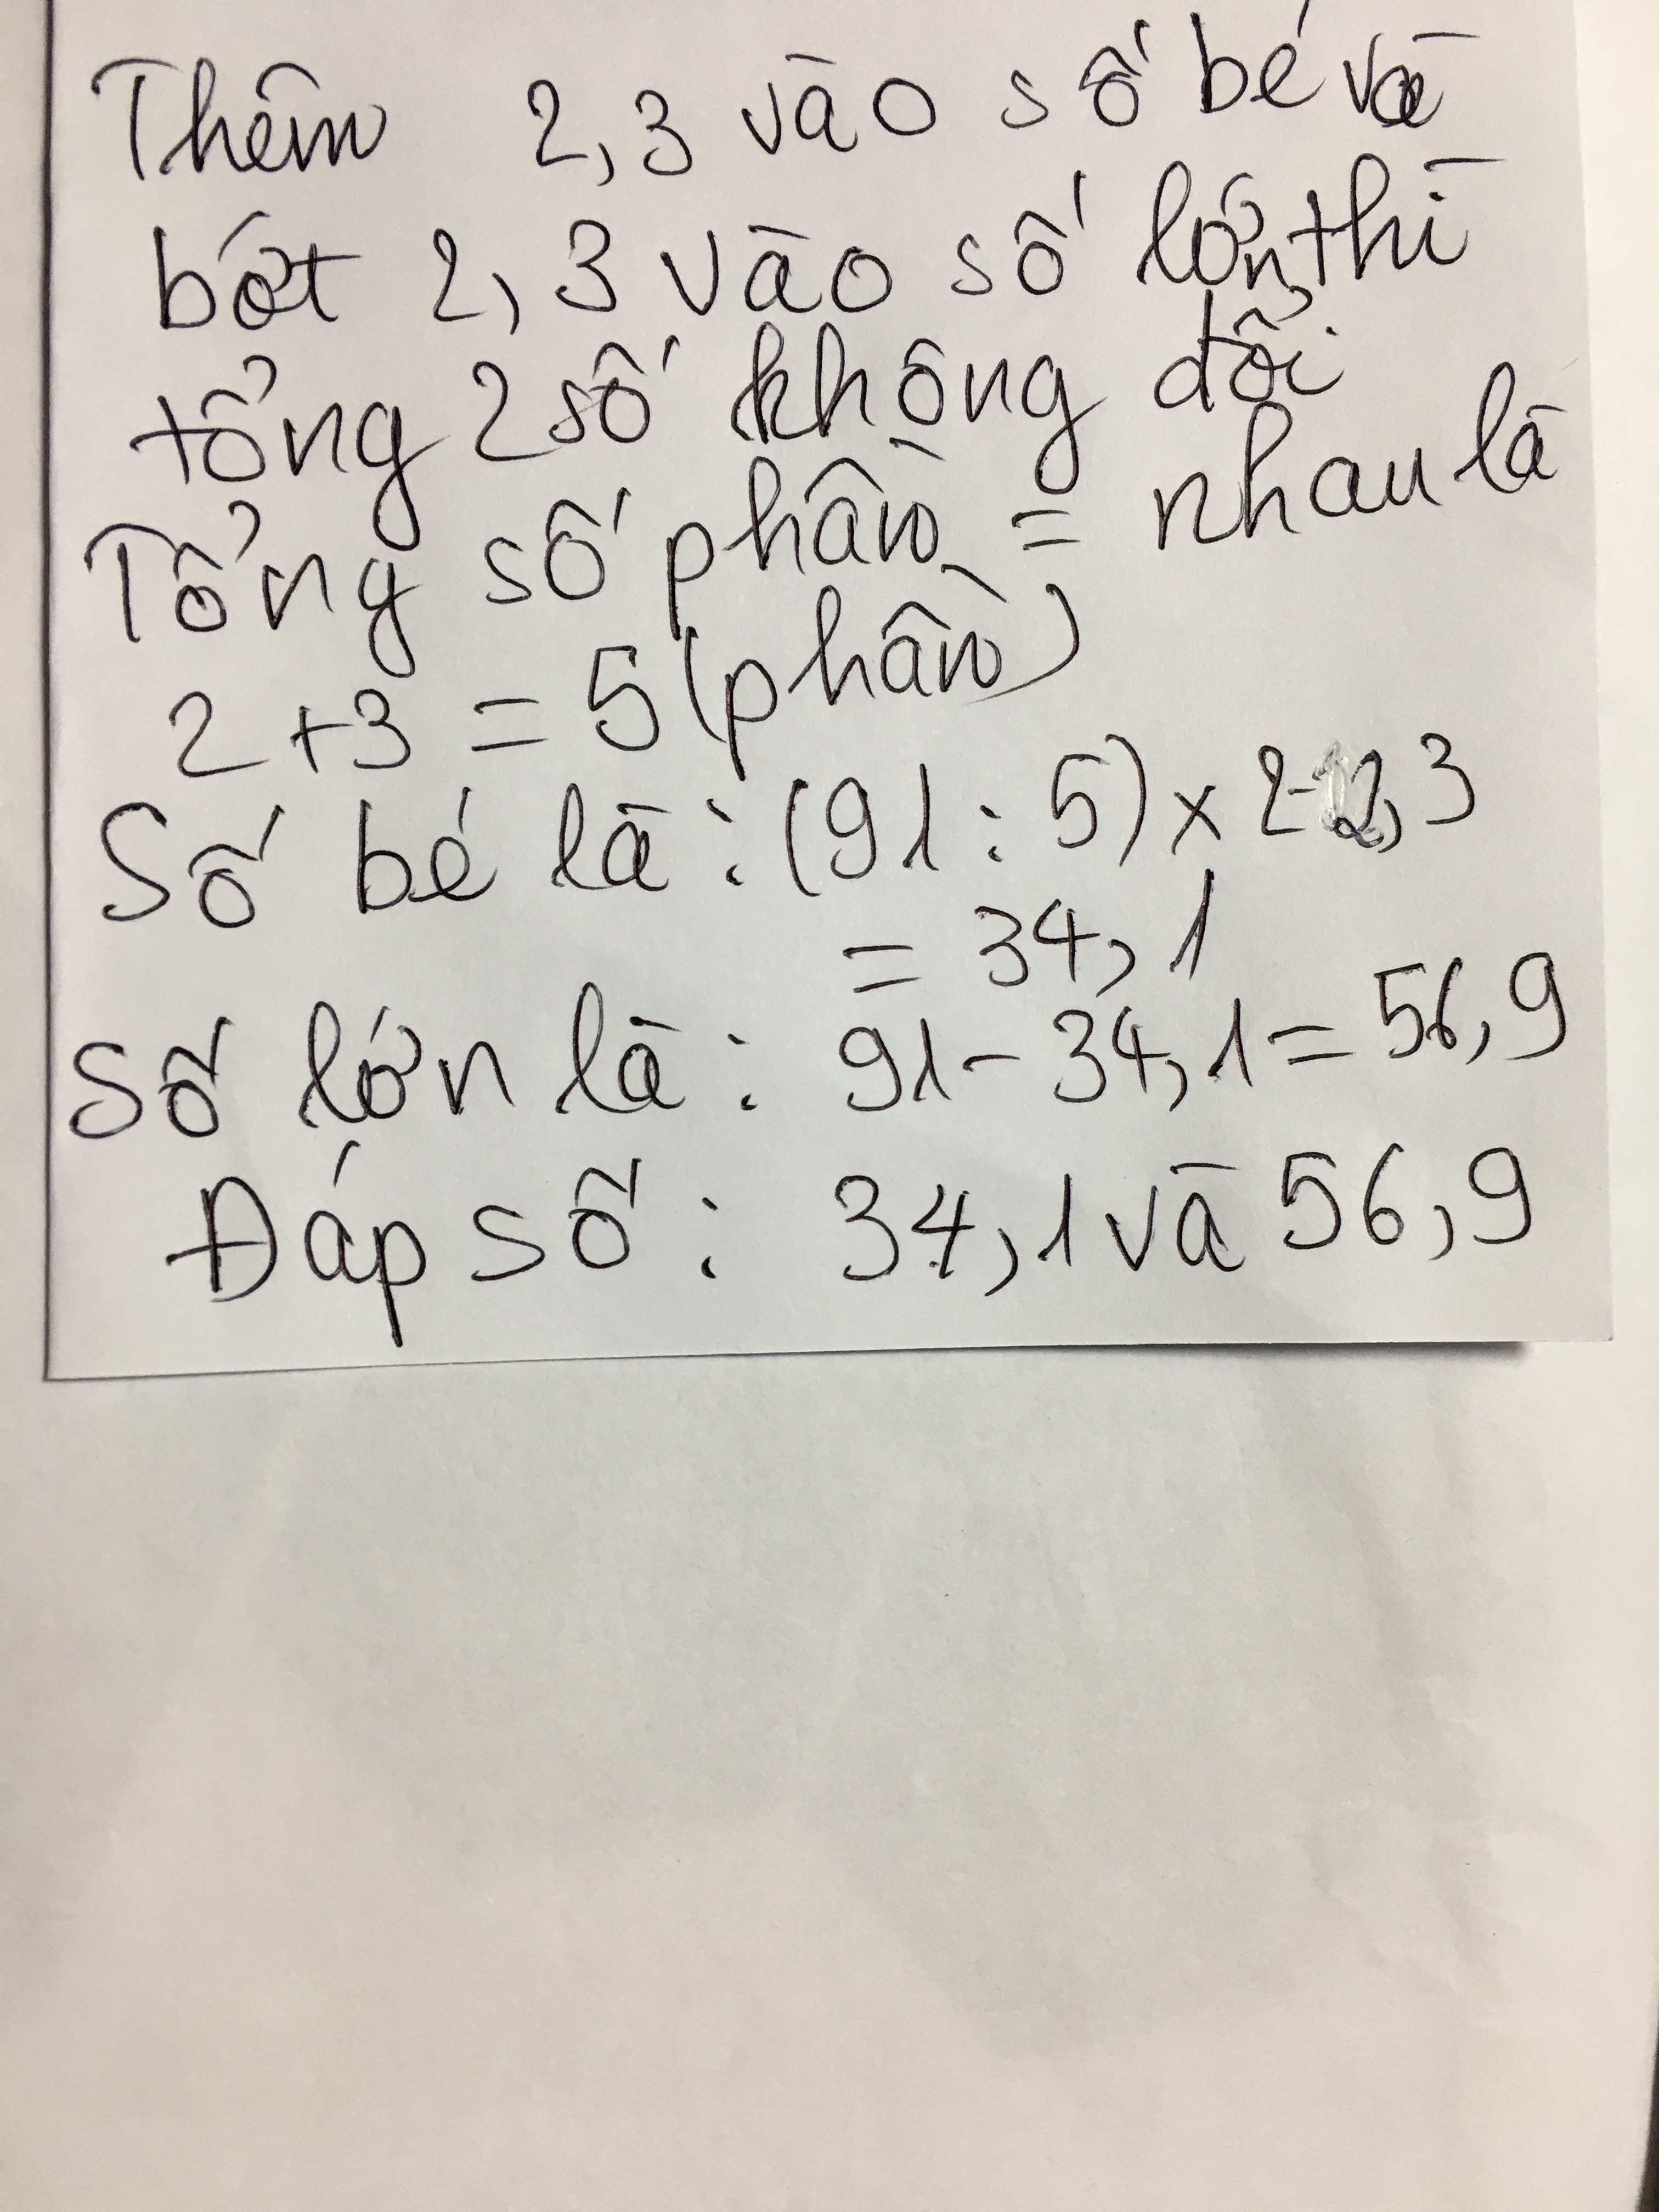 Thêm 2,3 vào số bé và
bớt 2,3 vào số lớn thì
tổng 2 số không đổi
Tổng số phần = nhau là
2 + 3 = 5 (phần)
Số bé là : (91 : 5) x 2 - 2,3
= 34,1
Số lớn là : 91 - 34,1 = 56,9
Đáp số : 34,1 và 56,9